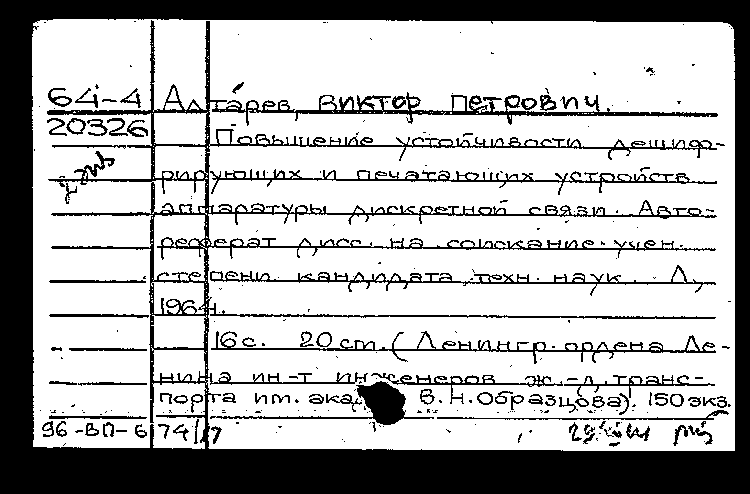 64-4 Алтарев, Виктор Петрович.
20326
Повышение устойчивости дешиф-
рирующих и печатающих устройств
аппаратуры дискретной связи. Авто-
реферат дисс. на соискание учен.
степени кандидата техн. наук. Л.,
1964.
16 с. 20 см. (Ленингр. ордена Ле-
нина ин-т инженеров ж.-д. транс-
порта им. акад. В. Н. Образцова). 150 экз.
96-ВП-6 74/17